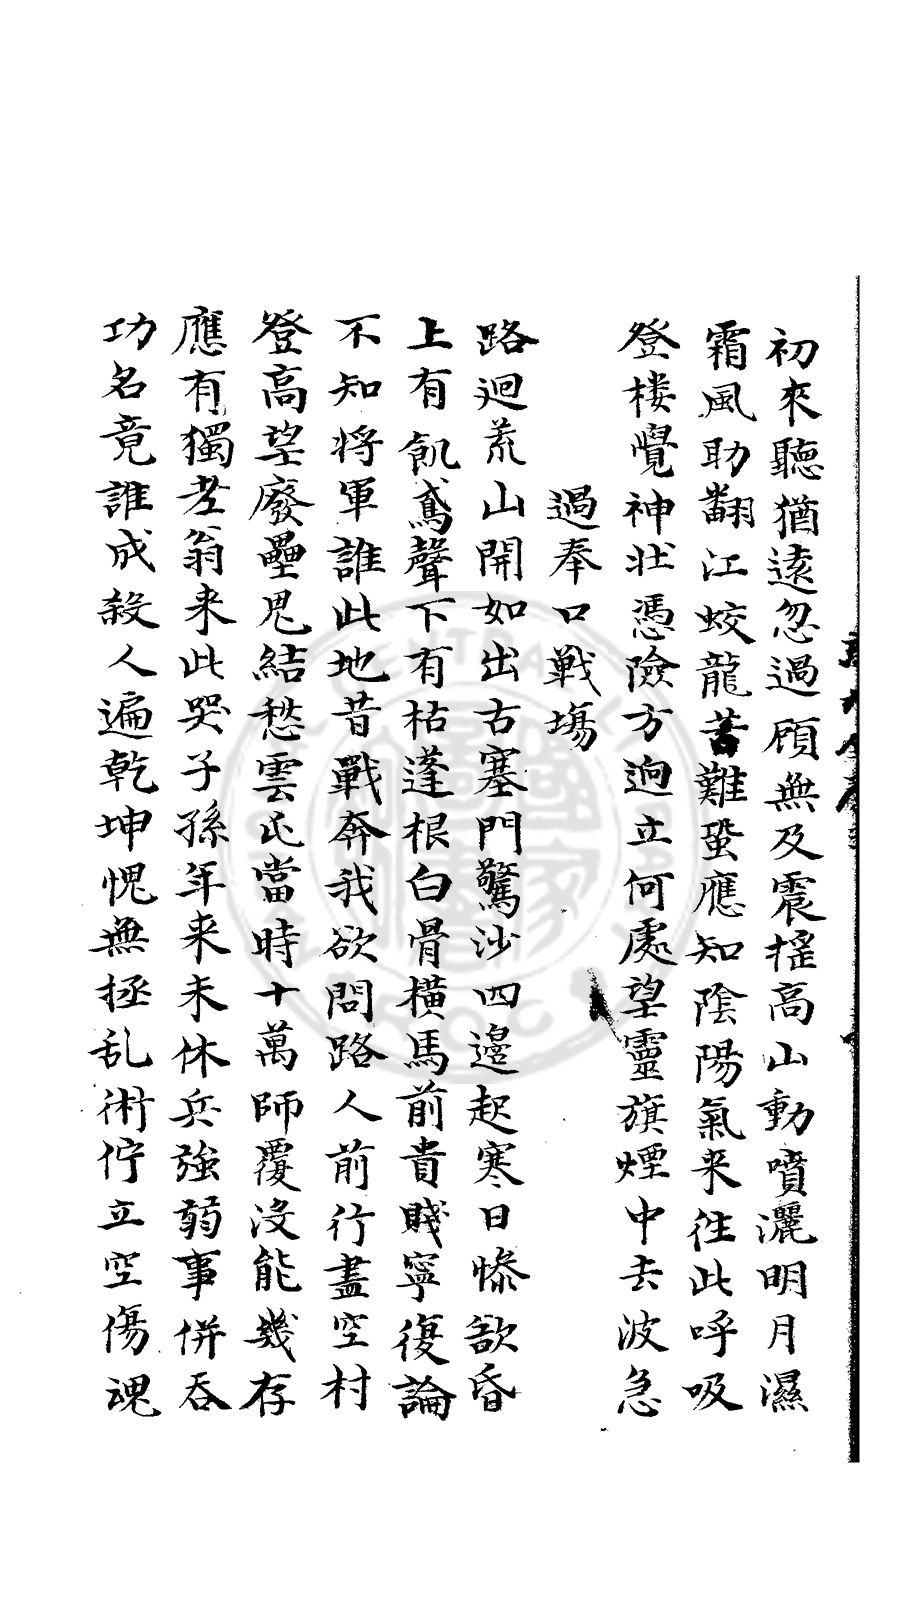 初來聽猶遠忽過顧無及震摇高山動噴灑明月濕
霜風助翻江蛟龍苦難蟄應知陰陽氣来往此呼吸
登樓覺神壮憑險方逈立何處望靈旗煙中去波急
過奉口戰塲
路迴荒山開如出古塞門驚沙四邊起寒日慘欲昏
上有飢鳶聲下有枯蓬根白骨横馬前貴賤寧復論
不知将軍誰此地昔戰奔我欲問路人前行盡空村
登高望廢壘鬼結愁雲屯當時十萬師覆没能幾存
應有獨老翁来此哭子孫年来未休兵強弱事併吞
功名竟誰成殺人遍乾坤愧無拯乱術佇立空傷魂